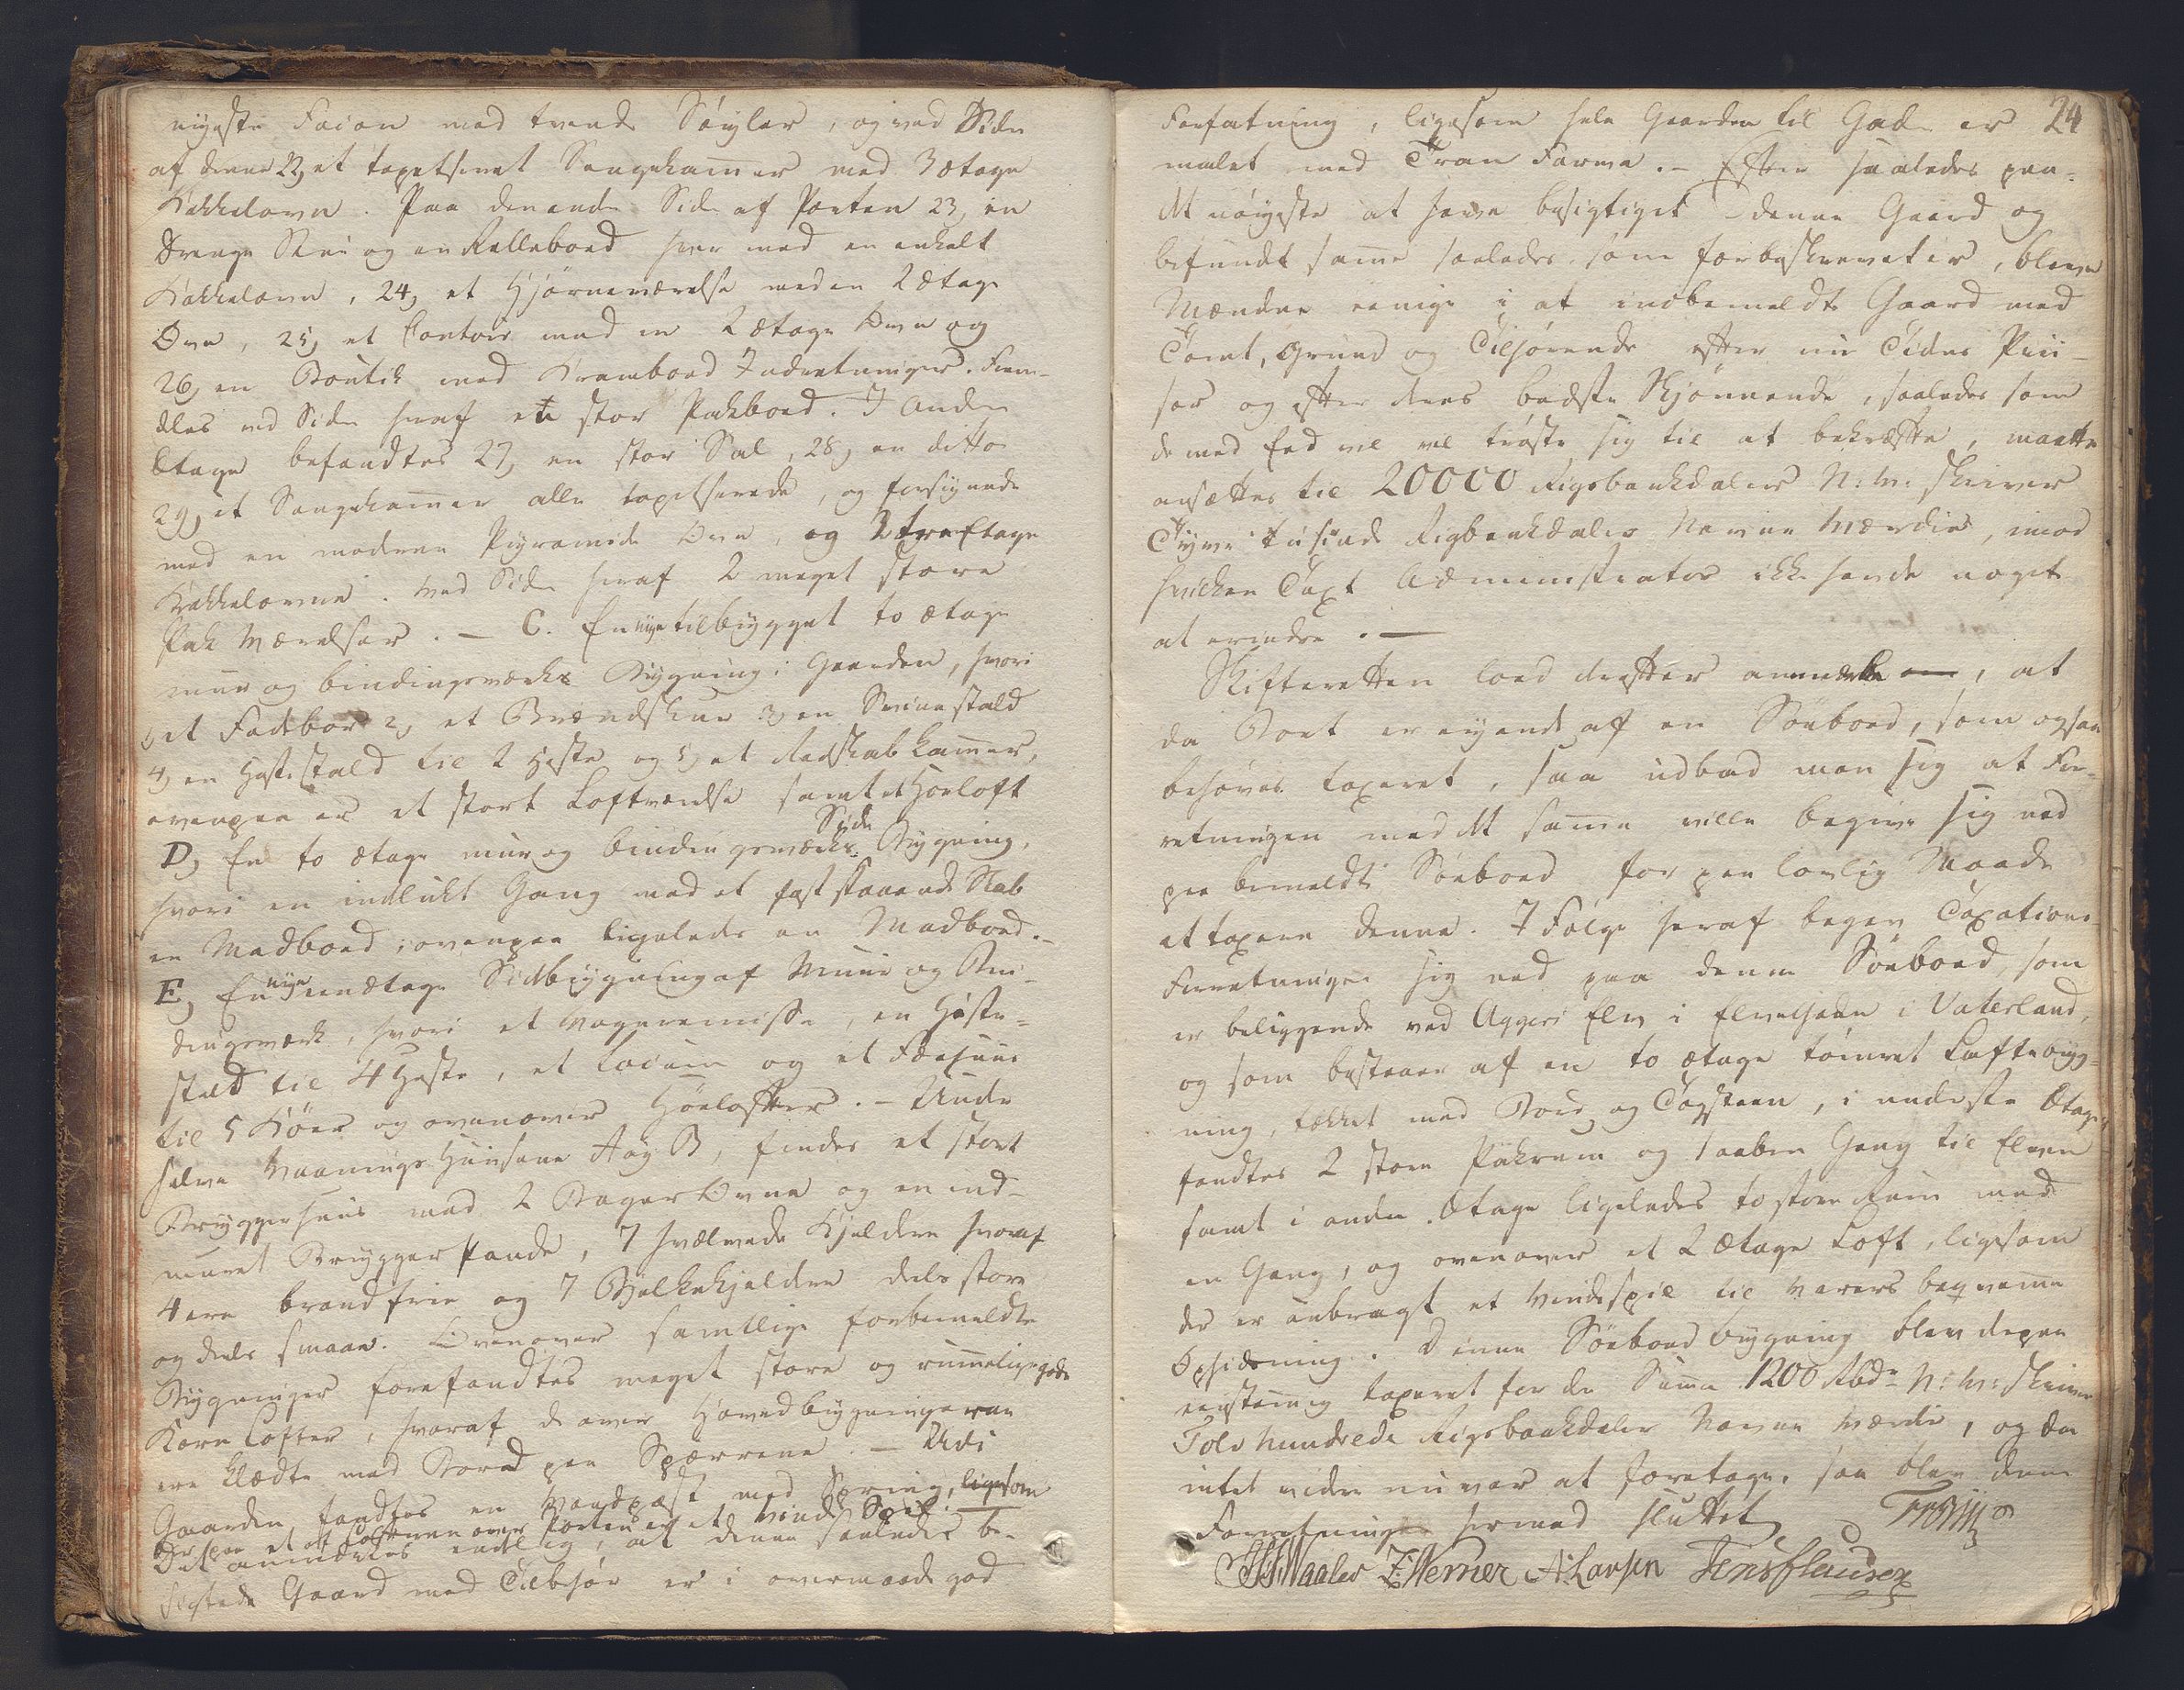 nyeste Facon med tvende Søyler, og ved Siden
af denne 22, et tapetseret Sengekammer med 3 Etage
Kakkelovn. Paa den anden Side af Porten 23, en
Drenge Stue og en Rulleboed hver med en enkelt
Kakkelovn, 24, et Hjørneværelse med en 2 Etage
Ovn, 25, et Contoir med en 2 Etage Ovn og
26, en Boutik med Kramboed Indretninger. Frem-
dles ved Siden heraf en stor Pakboed. I Anden
Etage befandtes 27, en stor Sal, 28, en ditto
29, et Sengekammer alle tapetserede, og forsynede
med en moderne Pyramide Ovn, og 2 tre Etage
Kakkelovne. Ved Siden heraf 2 meget store
Pak Værelser. – C. En nye tilbygget to Etage
muur og bindingsværks Bygning i Gaarden, hvori
1, et Fadebor 2, et Brændskuur 3, en Svinestald
4, en Hestestald til 2 Heste og 5, et Redskab kammer,
ovenpaa er et stort Loftværelse samt et Høeloft
D, En to Etage muur og bindingsværks Side Bygning,
hvori en indlukt Gang med et fast staaende Skab
en Madboed, ovenpaa ligeledes en Madboed. –
E, En nye eenetage Sidebygning af Muur og Bin-
dingsværk, hvori et Vognremisse, en Heste-
stald til 4 Heste, et Locum og et Fæehuus
til 5 Køer og ovenover Høelofter. – Under
selve Vaanings Huusene A og B, findes et stort
Bryggerhuus med 2 Bager Ovne og en ind-
muret Brygger Pande, 7 hvælvede Kjeldere hvoraf
4 ere brandfrie og 7 Bjelkekjeldere dels store
og dels smaae. Ovenover samtlige forbemeldte
Bygninger forefandtes meget store og rummelige gode
Korn Lofter, hvoraf de over Hovedbygningerne
ere klædte med Bord paa Sperrerne. – Udi
Gaarden fandtes en Vandpost med Spring, ligesom
der paa et af Lofterne over Porten er et Vinde Spil.
Det anmærkes endelig, at denne saaledes be-
sigtede Gaard med Tilbehør er i overmaade god
24
Forfatning, ligesom hele Gaarden til Gade er
malet med Tran Farve. – Efter saaledes paa
det nøyeste at have besigtiget denne Gaard og
befundet samme saaledes som forbeskrevet er, bleve
Mændene eenige i at indbemeldte Gaard med
Tomt, Grund og Tilhørende efter nu Tides Prii-
ser og efter deres bedste Skjønnende, saaledes som
de med Eed vel vil trøste sig til at bekræfte, maatte
ansættes til 20000 Rigsbankdaler N: V: skriver
Tyve tusinde Rigsbankdaler Navne Værdie, imod
hvilken Taxt Administrator ikke havde noget
at erindre. –
Skifteretten loed derefter anmærke, at
da Boet er eyende af en Søeboed, som ogsaa
behøves taxeret, saa udbad man sig at For-
retningen med det samme ville begive sig ned
paa bemeldte Søeboed for paa lovlig Maade
at taxere denne. I Følge heraf begav Taxations-
Forretningen sig ned paa denne Søeboed, som
er beliggende ved Aggers Elv i Elvegaden i Vaterland,
og som bestaaer af en to Etage tømret Lafte byg-
ning, tækket med Bord og Tagsteen, i underste Etage
fandtes 2 store Pakrum og 1 aaben Gang til Elven
samt i anden Etage ligeledes to store Rum med
en Gang, og ovenover et 2 Etage Loft, ligesom
der er anbragt et Vindespil til Varers beqvemme
Ophidsning. Denne Søeboed bygning blev derpaa
eenstemmig taxeret for den Summa 1200 Rbdr N: V: skriver
Tolv hundrede Rigsbankdaler Navne Værdie, og da
intet videre nu var at foretage, saa blev denne
Forretning hermed sluttet
Waaler Z: Werner A: Larsen Jens Clausen